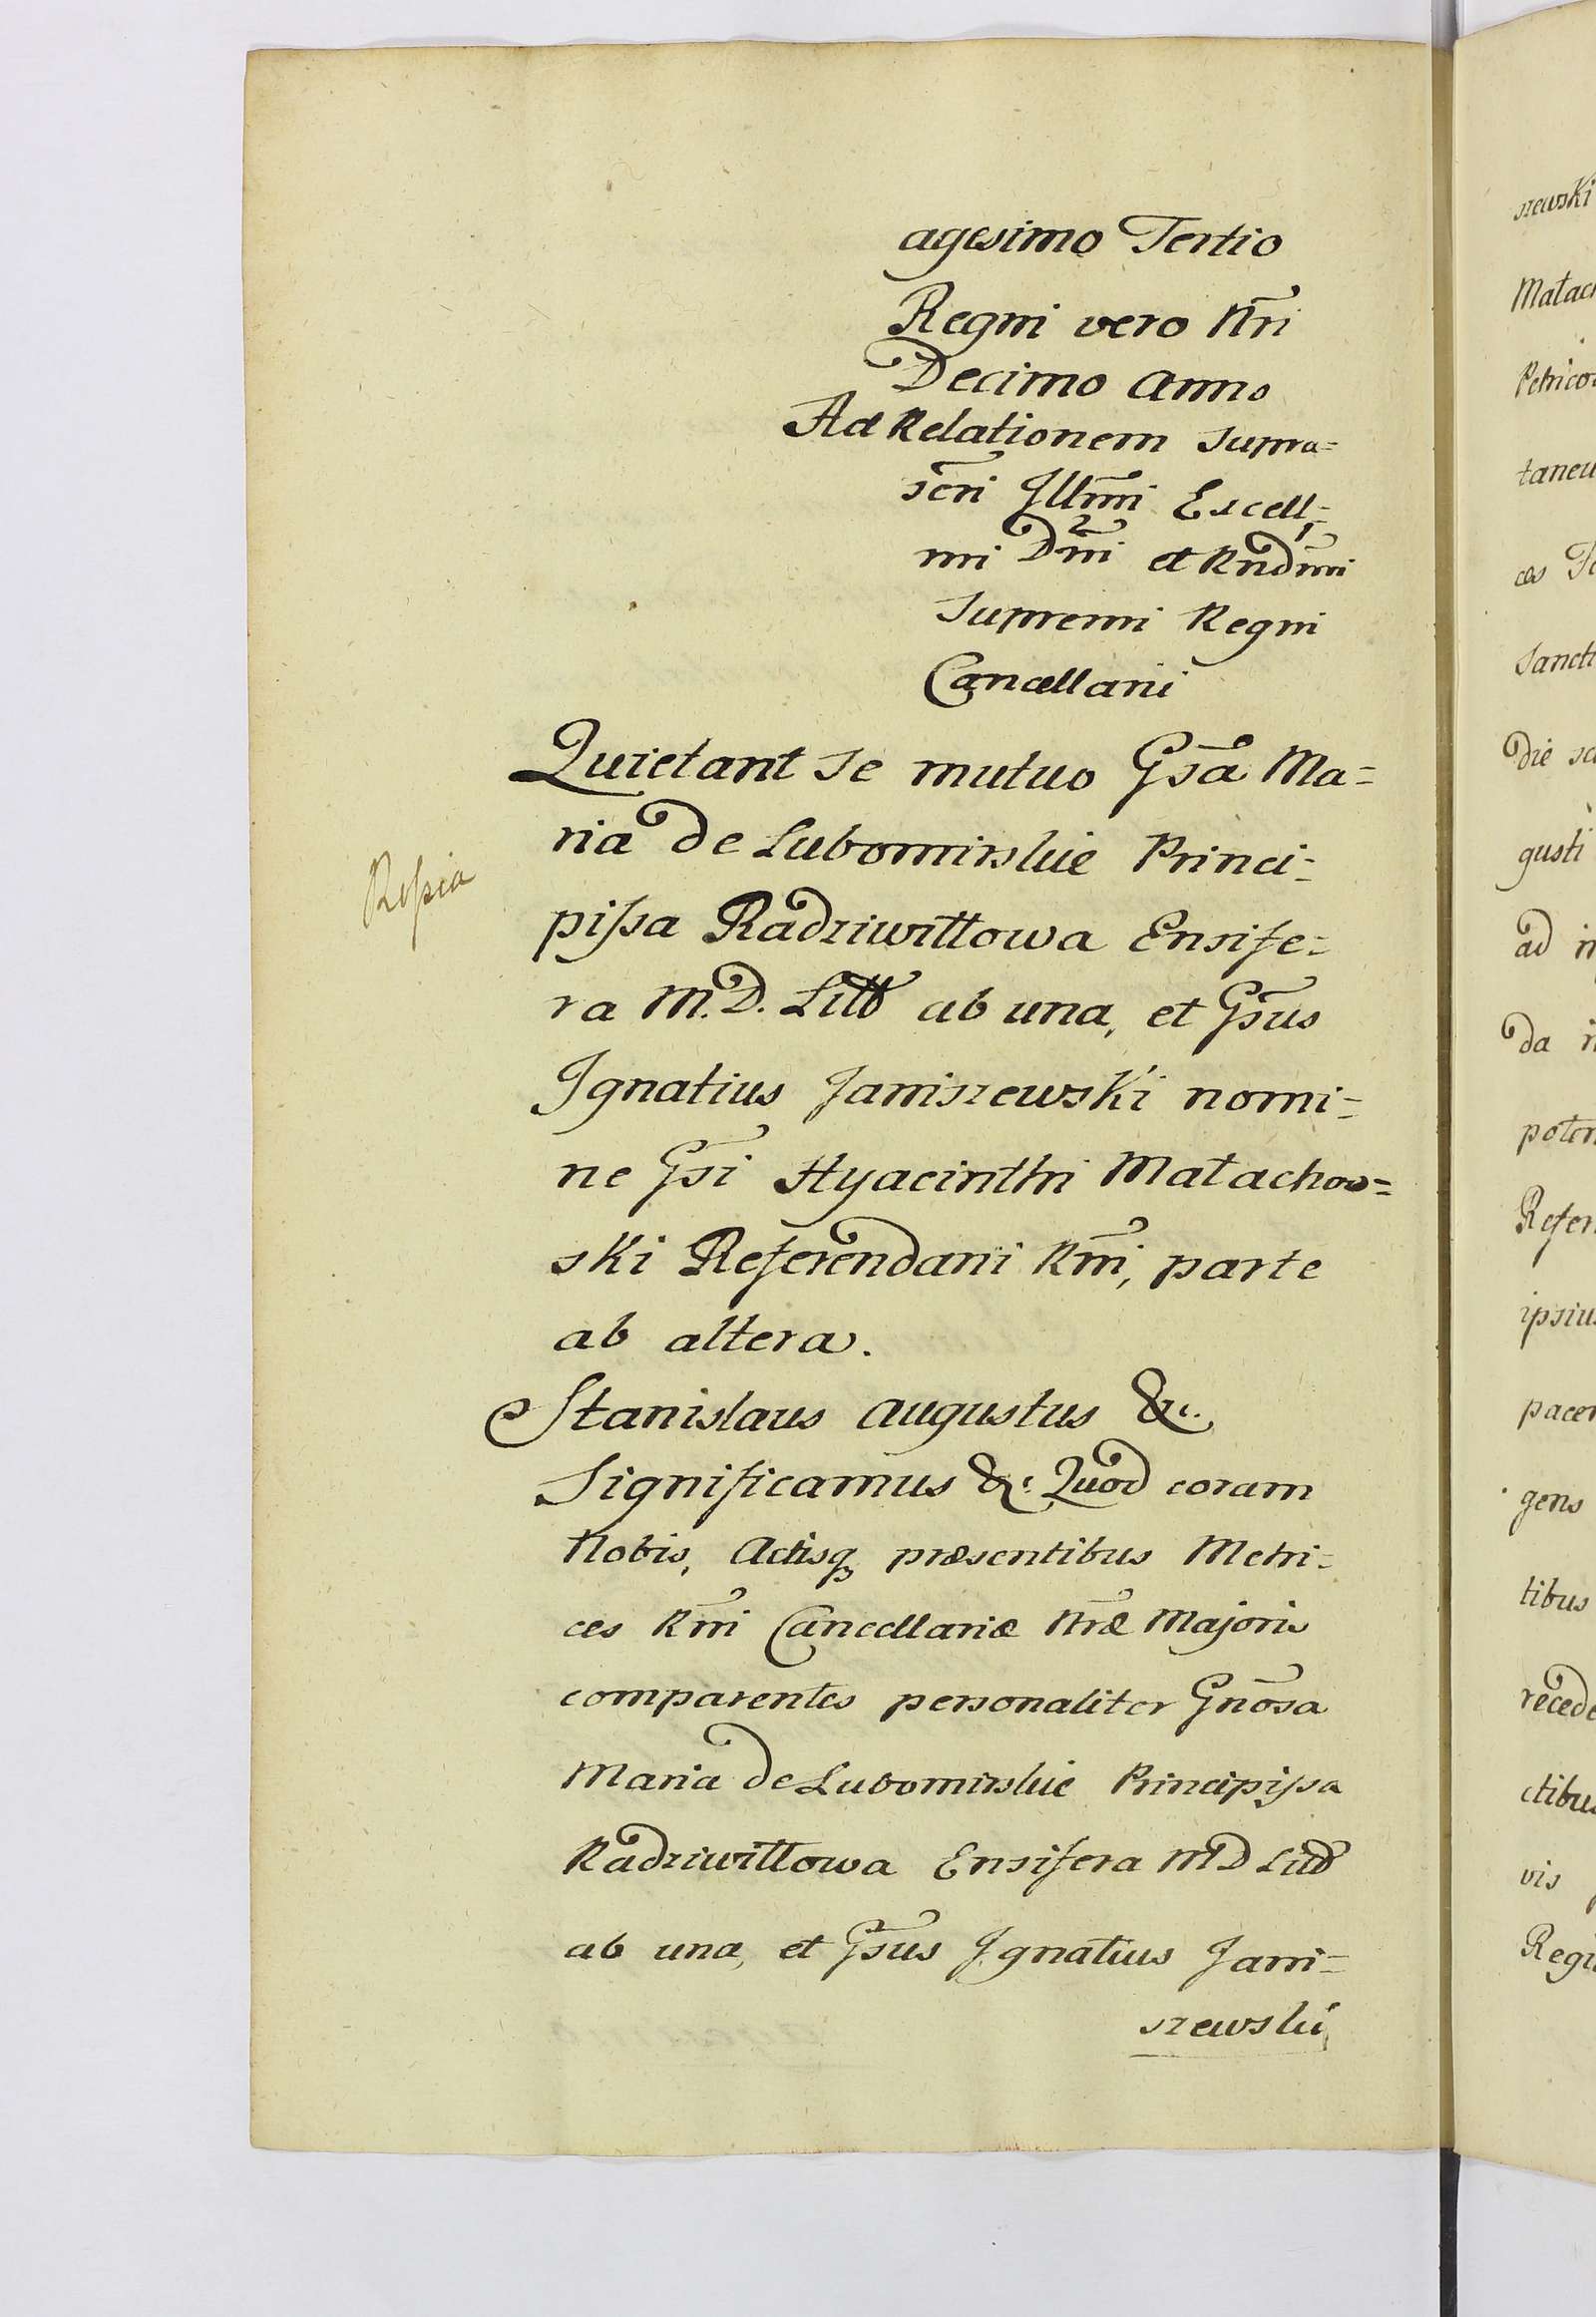 agesimo Tertio
Regni vero Nr̃i
Decimo anno
Ad Relationem supra=
scr̃i Illm̃i Excell=
mi Dñi et Rndm̃i
Supremi Regni
Cancellarii
Quietant se mutuo Gs̃a Ma=
ria de Lubomirskie Princi=
pissa Radziwiłłowa Ensife=
ra M.D. Litt ab una, et Gs̃us
Ignatius Janiszewski nomi=
ne Gs̃i Hyacinthi Małachow=
ski Referendarii Rñi, parte
ab altera.
Stanislaus Augustus &c.
Significamus &c. Quod coram
Nobis, Actisq præsentibus Metri=
ces Rñi Cancellariæ Nr̃æ Majoris
comparentes personaliter Gnõsa
Maria de Lubomirskie Principissa
Radziwiłłowa Ensifera MD Litt
ab una, et Gs̃us Ignatius Jani=
szewski
szewski
Małac
Petrico
taneu
ces
Sancti
Die
gusti
ad
da
poten
Refer
ipsiu
pacer
gens
tibus
recede
ctibu
vis
Regi